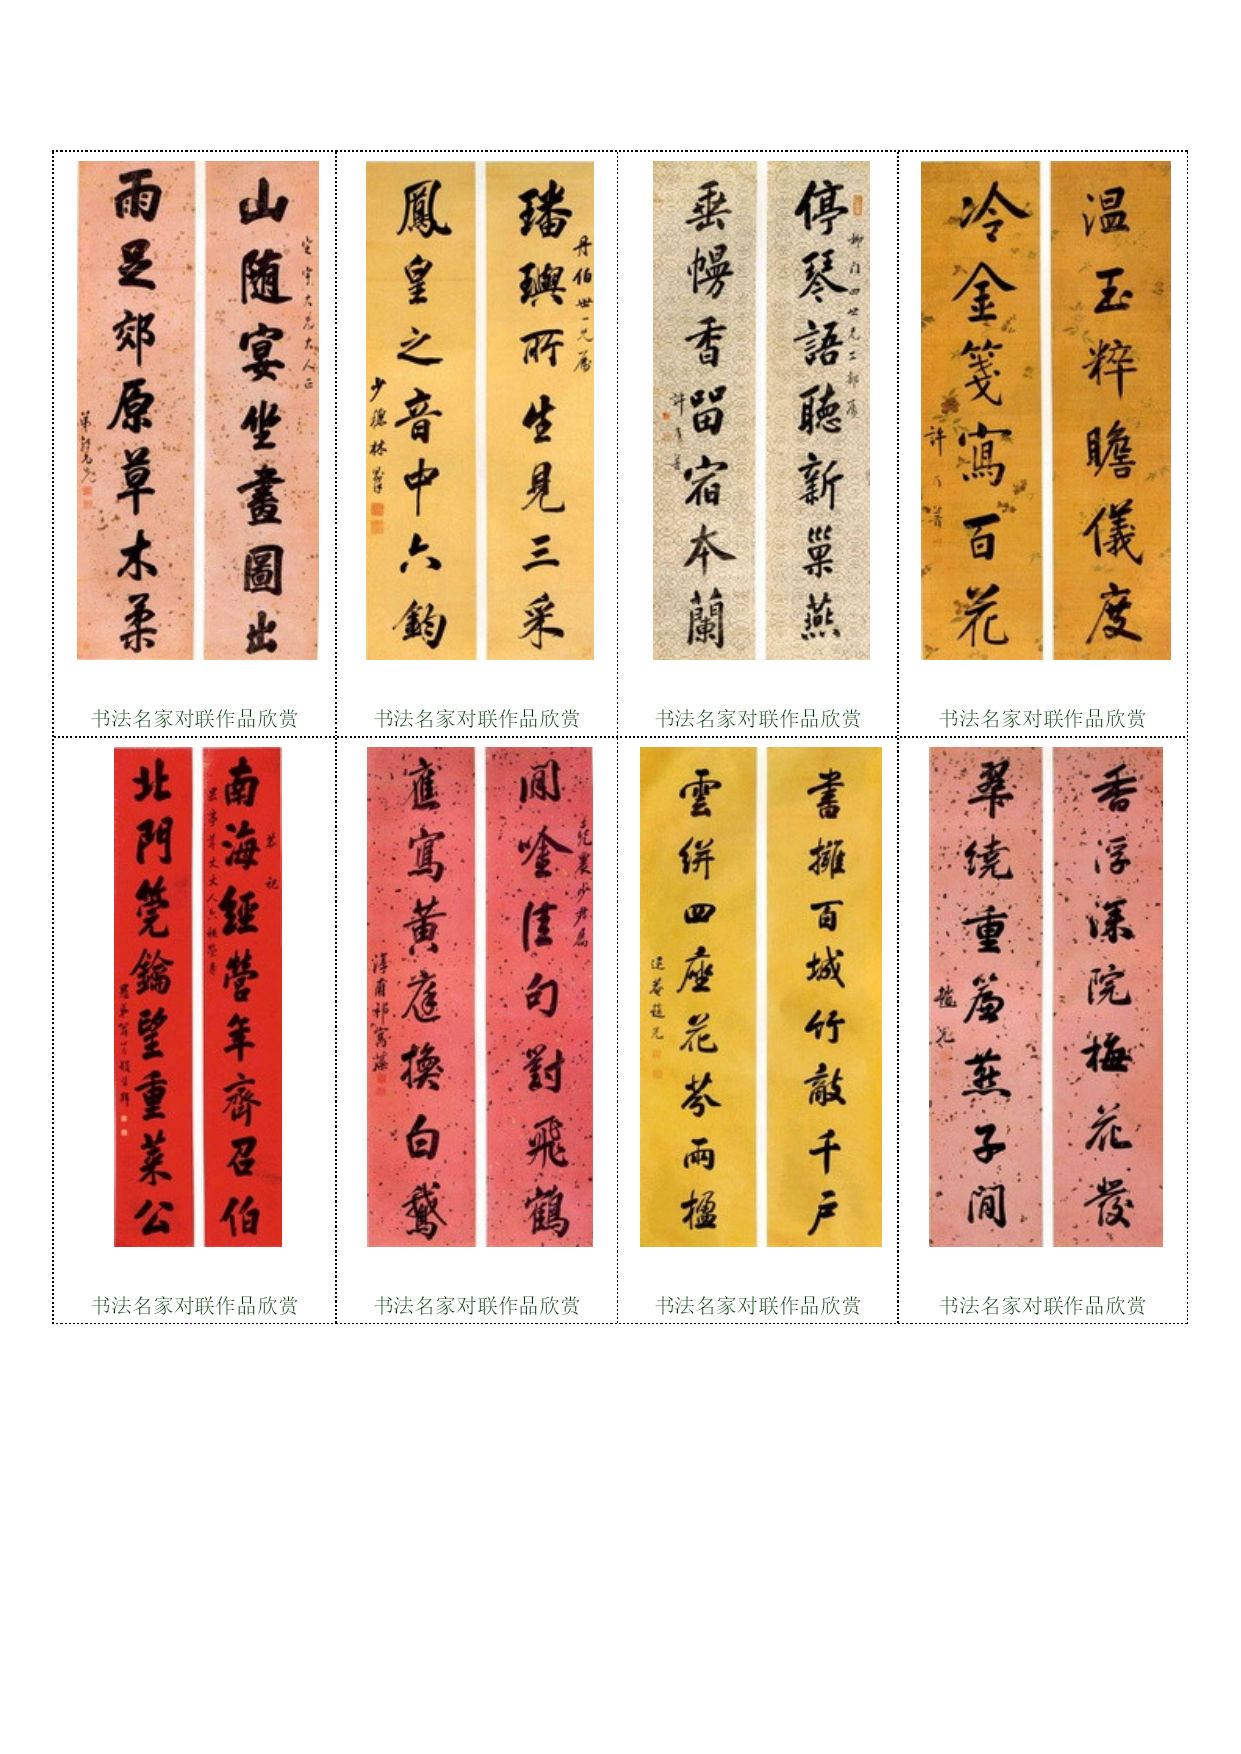 山随宴坐畫圖出
雨足郊原草木柔
书法名家对联作品欣赏
璠璵所生見三采
鳳皇之音中六鈞
丹伯世一兄屬
少穆林
书法名家对联作品欣赏
停琴語聽新巢燕
垂幔香留宿本蘭
书法名家对联作品欣赏
温玉粹瞻儀度
冷金箋寫百花
书法名家对联作品欣赏
南海經營年齊召伯
北門筦鑰望重萊公
恭祝
书法名家对联作品欣赏
閒吟佳句對飛鶴
應寫黃庭換白鵝
淳甫祁寯藻
书法名家对联作品欣赏
書擁百城竹敲千戶
雲絣四座花芬兩楹
书法名家对联作品欣赏
香浮深院梅花發
翠繞重簾燕子閒
书法名家对联作品欣赏